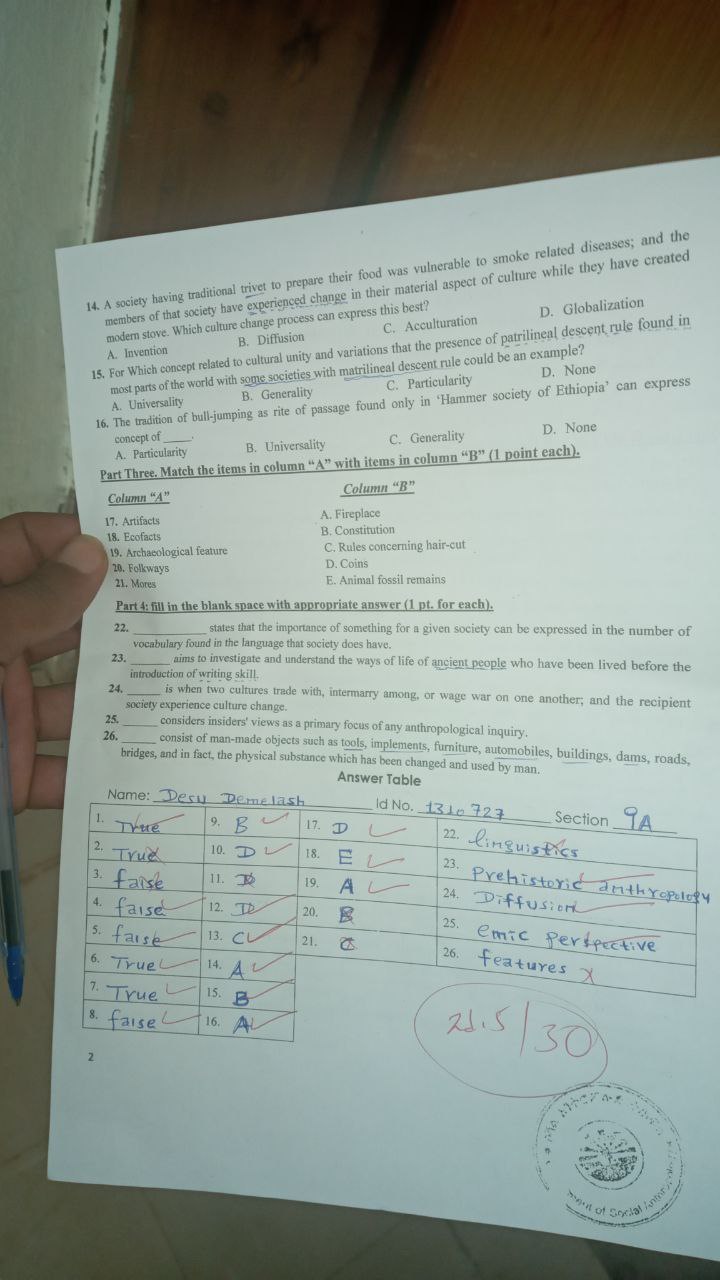 14. A society having traditional trivet to prepare their food was vulnerable to smoke related diseases; and the
members of that society have experienced change in their material aspect of culture while they have created
modern stove. Which culture change process can express this best?
A. Invention B. Diffusion C. Acculturation D. Globalization
15. For Which concept related to cultural unity and variations that the presence of patrilineal descent rule found in
most parts of the world with some societies with matrilineal descent rule could be an example?
A. Universality B. Generality C. Particularity D. None
16. The tradition of bull-jumping as rite of passage found only in ‘Hammer society of Ethiopia’ can express
concept of _____.
A. Particularity B. Universality C. Generality D. None
Part Three. Match the items in column “A” with items in column “B” (1 point each).
Column “A” Column “B”
17. Artifacts A. Fireplace
18. Ecofacts B. Constitution
19. Archaeological feature C. Rules concerning hair-cut
20. Folkways D. Coins
21. Mores E. Animal fossil remains
Part 4: fill in the blank space with appropriate answer (1 pt. for each).
22. __________ states that the importance of something for a given society can be expressed in the number of
vocabulary found in the language that society does have.
23. ______ aims to investigate and understand the ways of life of ancient people who have been lived before the
introduction of writing skill.
24. _____ is when two cultures trade with, intermarry among, or wage war on one another; and the recipient
society experience culture change.
25. _____ considers insiders' views as a primary focus of any anthropological inquiry.
26. _____ consist of man-made objects such as tools, implements, furniture, automobiles, buildings, dams, roads,
bridges, and in fact, the physical substance which has been changed and used by man.
Answer Table
Name: Desu Demelash Id No. 1310727 Section 9A
1. True 9. B 17. D 22. linguistics
2. True 10. D 18. E 23. Prehistoric anthropology
3. false 11. 19. A 24. Diffusion
4. false 12. D 20. B 25. emic perspective
5. false 13. C 21. C 26. features
6. True 14. A
7. True 15. B
8. false 16. A
21.5/30
2
of Social